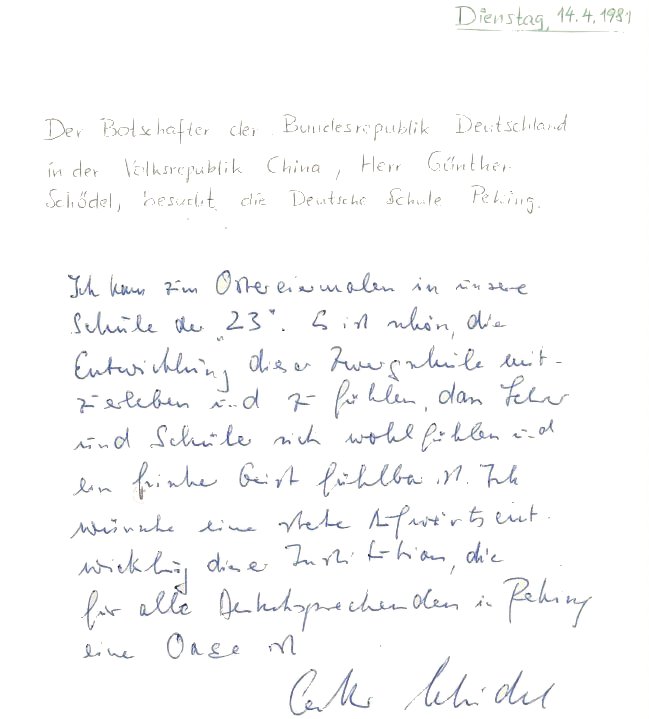 Dienstag, 14.4.1981
Der Botschafter der Bundesrepublik Deutschland
in der Volksrepublik China, Herr Günther
Schödel, besucht die Deutsche Schule Peking.
Ich kam zum Ostereiermalen in unsere
Schule der „23“. Es ist schön, die
Entwicklung dieser Zwergschule mit-
zuerleben und zu fühlen, dass Lehrer
und Schüler sich wohlfühlen und
ein frischer Geist fühlbar ist. Ich
wünsche eine stete Aufwärtsent-
wicklung dieser Institution, die
für alle Deutschsprechenden in Peking
eine Oase ist
Günther Schödel